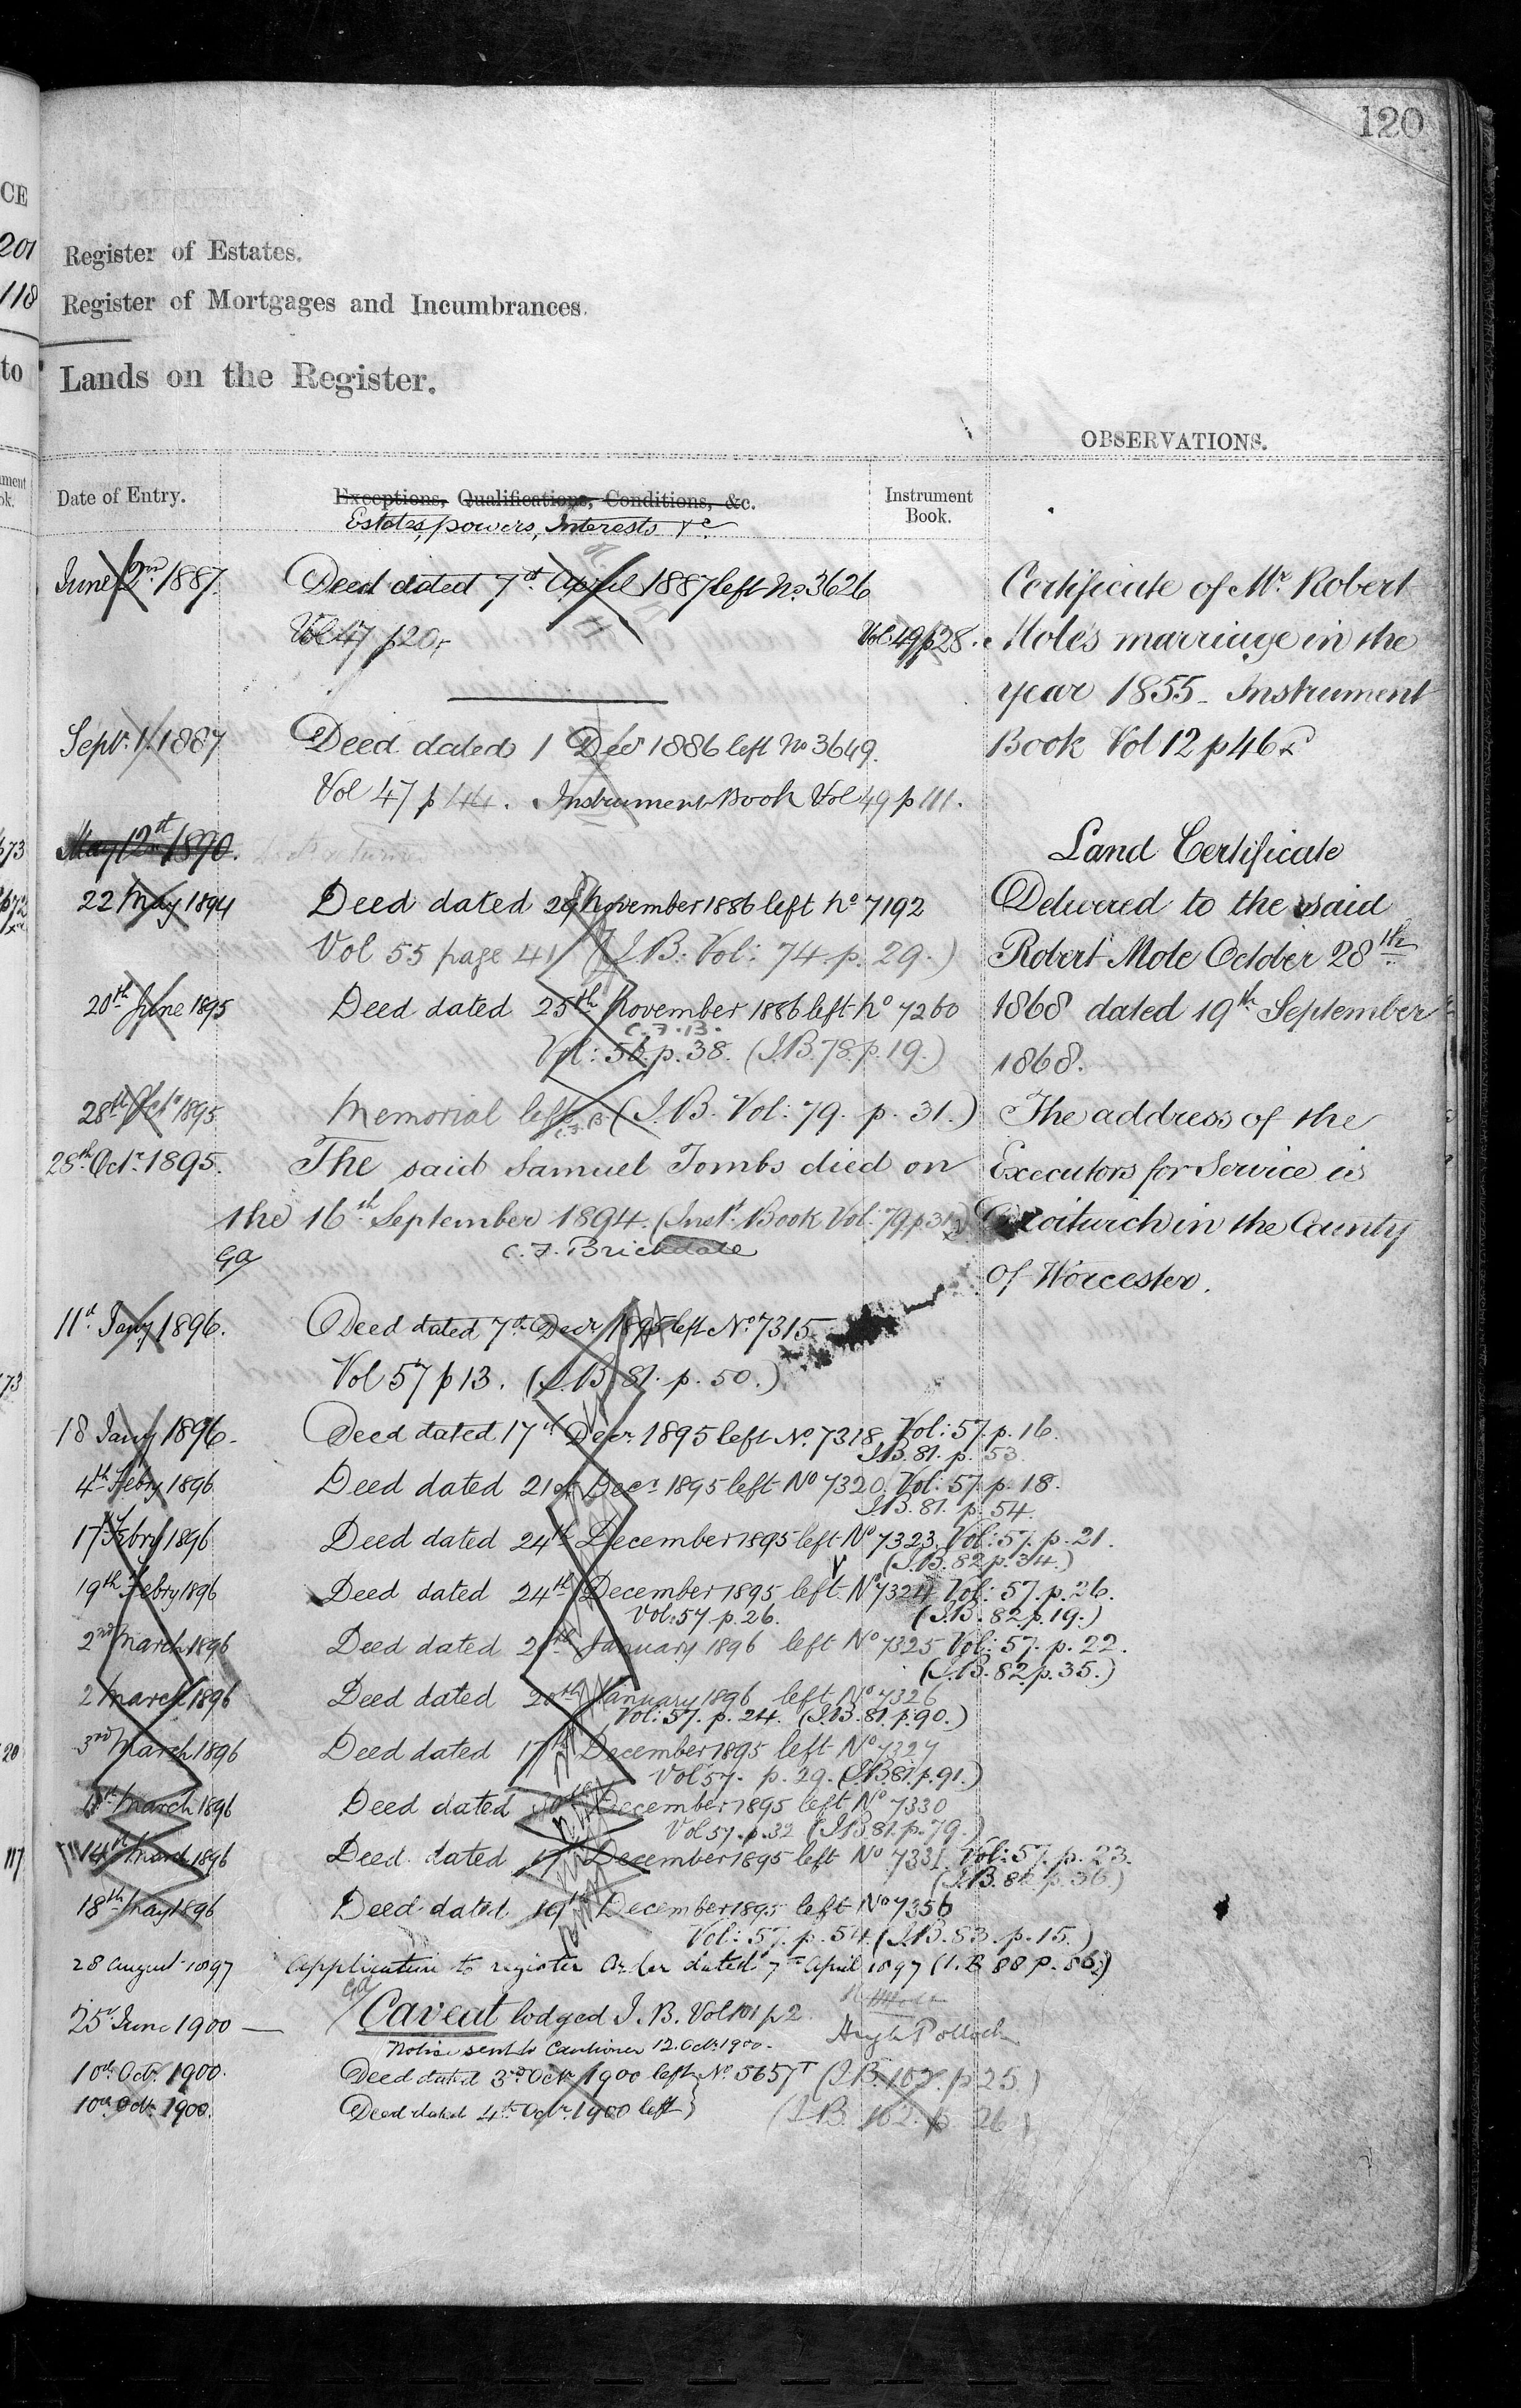 120
CE
201
118
to
Register of Estates.
Register of Mortgages and Incumbrances.
Lands on the Register.
OBSERVATIONS.
Date of Entry.
Exceptions, Qualifications, Conditions, &c.
Estates, powers, Interests &c.
Instrument
Book.
June 2nd 1887. Deed dated 7th April 1887 left No. 3626
Vol 47 p 20, Vol. 49 p 28.
Septr. 1. 1887 Deed dated 1 Decr 1886 left No 3649.
Vol 47 p 144. Instrument Book Vol 49 p 111.
May 12 1890.
22 May 1894 Deed dated 29 November 1886 left No 7192
Vol 55 page 41 (I.B. Vol: 74. p. 29.)
20th June 1895 Deed dated 25th November 1886 left No 7260
C.F.B.
Vol: 56. p. 38. (I.B. 78. p. 19.)
28th Octr 1895 Memorial left (I.B. Vol: 79. p. 31.)
C.F.B
28th Octr. 1895. The said Samuel Tombs died on
the 16th September 1894. (Inst. Book Vol. 79 p 31)
C. F. Brickdale
11th Jany 1896. Deed dated 7th Decr 1895 left No. 7315
Vol 57 p 13. (I.B. 81. p. 50.)
18 Jany 1896. Deed dated 17th Decr. 1895 left No. 7318 Vol: 57. p. 16.
I.B. 81. p. 53.
4th Febry 1896 Deed dated 21st Decr 1895 left No 7320. Vol: 57. p. 18.
I.B. 81. p. 54.
17th Febry 1896 Deed dated 24th December 1895 left No 7323. Vol: 57. p. 21.
(I.B. 82 p. 34.)
19th Febry 1896 Deed dated 24th December 1895 left No 7324 Vol: 57. p. 26.
Vol: 57. p. 26. (I.B. 82. p. 19.)
2nd March 1896 Deed dated 20th January 1896 left No 7325 Vol: 57. p. 22.
(I.B. 82. p. 35.)
2 March 1896 Deed dated 20th January 1896 left No 7326
Vol: 57. p. 24. (I.B. 81. p. 90.)
3rd March 1896 Deed dated 17th December 1895 left No 7327
Vol 57. p. 29. (I.B. 81. p. 91.)
March 1896 Deed dated December 1895 left No 7330
Vol 57. p. 32 (I.B. 81. p. 79.)
14th March 1896 Deed dated 17 December 1895 left No 7331. Vol: 57. p. 23.
(I.B. p. 36.)
18th May 1896 Deed dated 19th December 1895 left No 7356
Vol: 57. p. 54. (I.B. 83. p. 15.)
28 August 1897 Application to register Order dated 7th April 1897 (I.B 88 p. 86)
25th June 1900 — Caveat lodged I.B. Vol 101 p 2
Hugh Pollock
Notice sent to Cautioner 12. Octr 1900.
10th Octr. 1900. Deed dated 3rd Octr. 1900 left No. 5657T (I.B. 102. p 25)
10th Octr. 1900. Deed dated 4th Octr. 1900 left (I.B. 102. p. 26)
Certificate of Mr. Robert
Mole's marriage in the
year 1855 - Instrument
Book Vol 12 p 46
Land Certificate
Delivered to the said
Robert Mole October 28th
1868 dated 19th September
1868.
The address of the
Executors for Service is
Droitwich in the County
of Worcester.